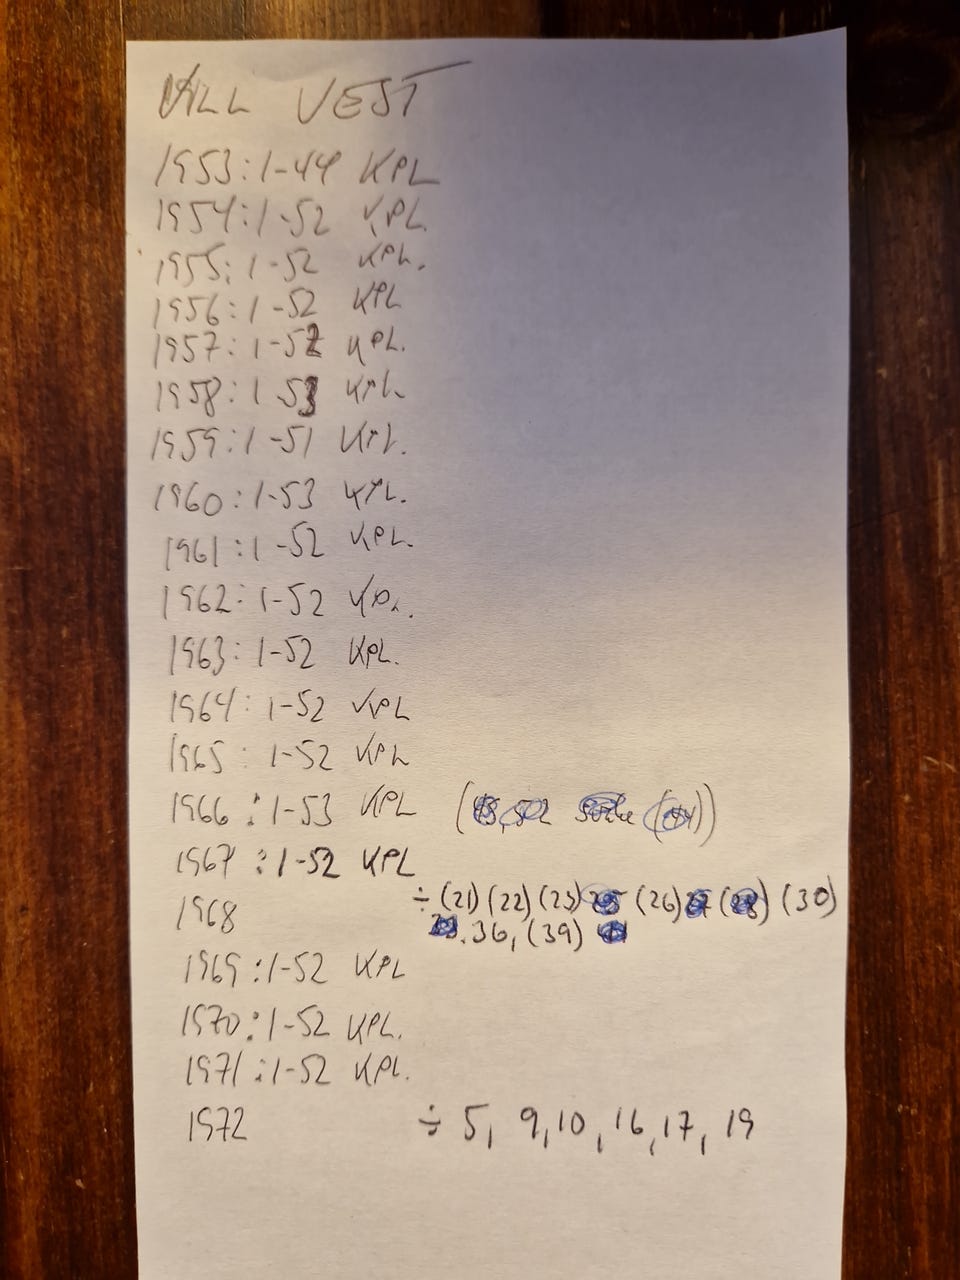 VILL VEST
1953: 1-44 KPL
1954: 1-52 KPL.
1955: 1-52 KPL.
1956: 1-52 KPL
1957: 1-52 KPL.
1958: 1-53 KPL
1959: 1-51 KPL.
1960: 1-53 KPL.
1961: 1-52 KPL.
1962: 1-52 KPL.
1963: 1-52 KPL.
1964: 1-52 KPL
1965: 1-52 KPL
1966: 1-53 KPL
1967: 1-52 KPL
1968 ÷ (21) (22) (23) (26) (30)
36, (39)
1969: 1-52 KPL
1970: 1-52 KPL.
1971: 1-52 KPL.
1972 ÷ 5, 9, 10, 16, 17, 19